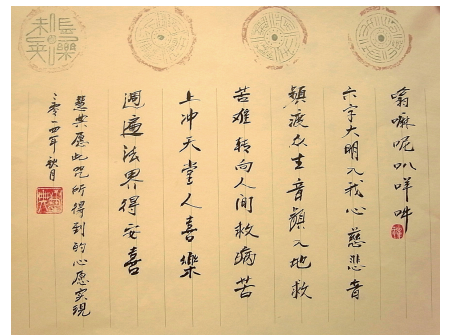 嗡嘛呢叭咩吽
六字大明入我心慈悲音
頻渡众生音頻入地救
苦难转向人间救病苦
上冲天堂人喜樂
週遍法界得安喜
愿此咒所得到的心愿实現
二零一四年秋月